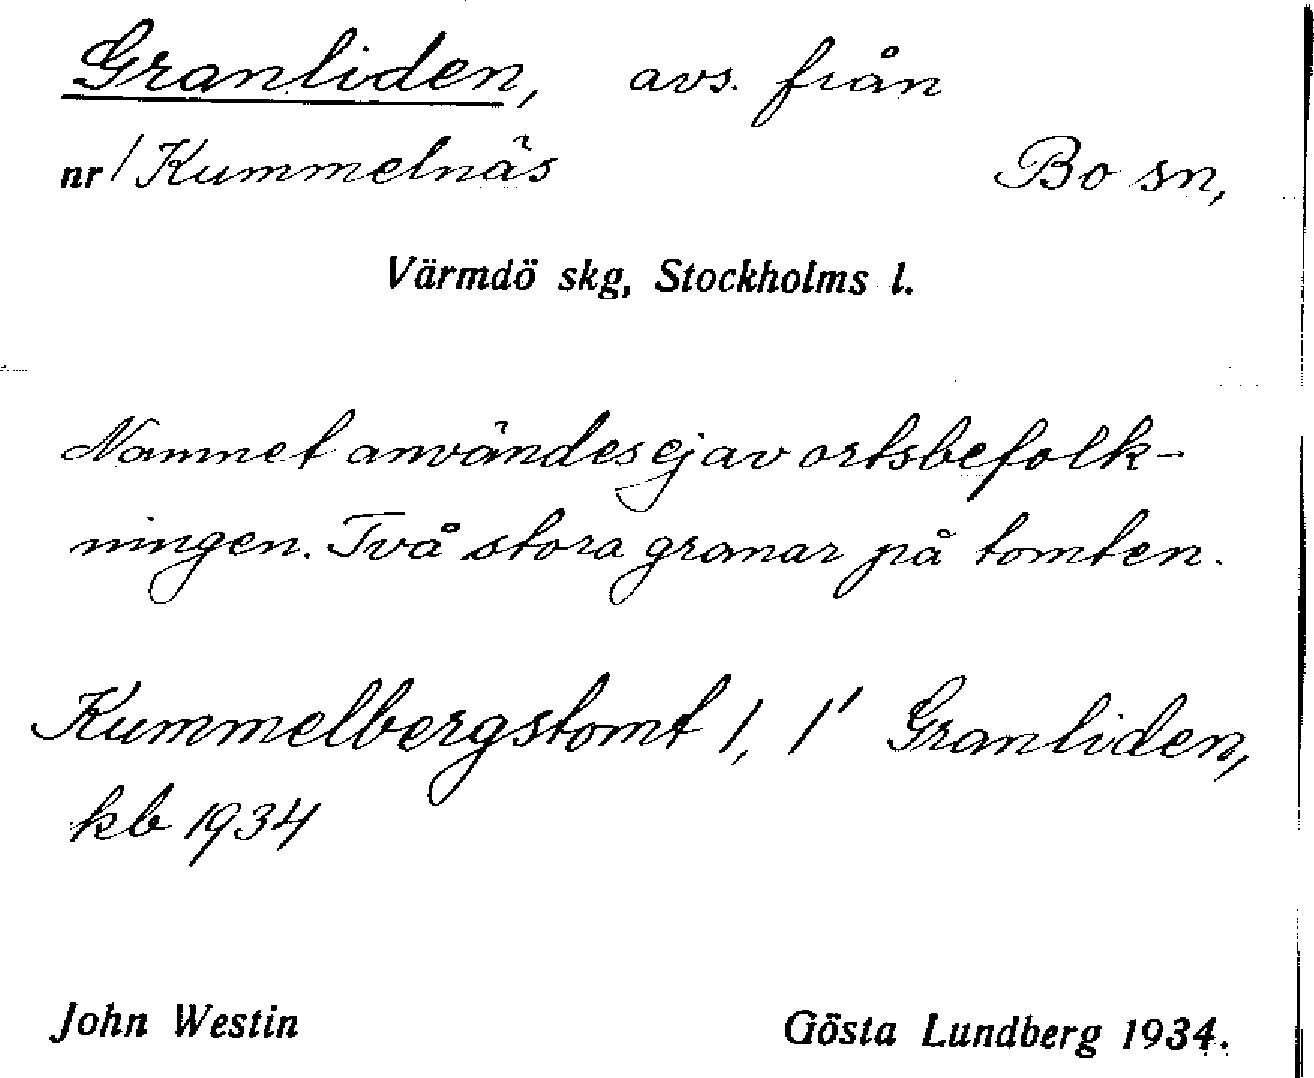 Granliden, avs. från
nr 1 Kummelnäs Bo sn,
Värmdö skg, Stockholms l.
Namnet användes ej av ortsbefolk-
ningen. Två stora granar på tomten.
Kummelbergstomt 1, 1' Granliden,
kb 1934
John Westin Gösta Lundberg 1934.